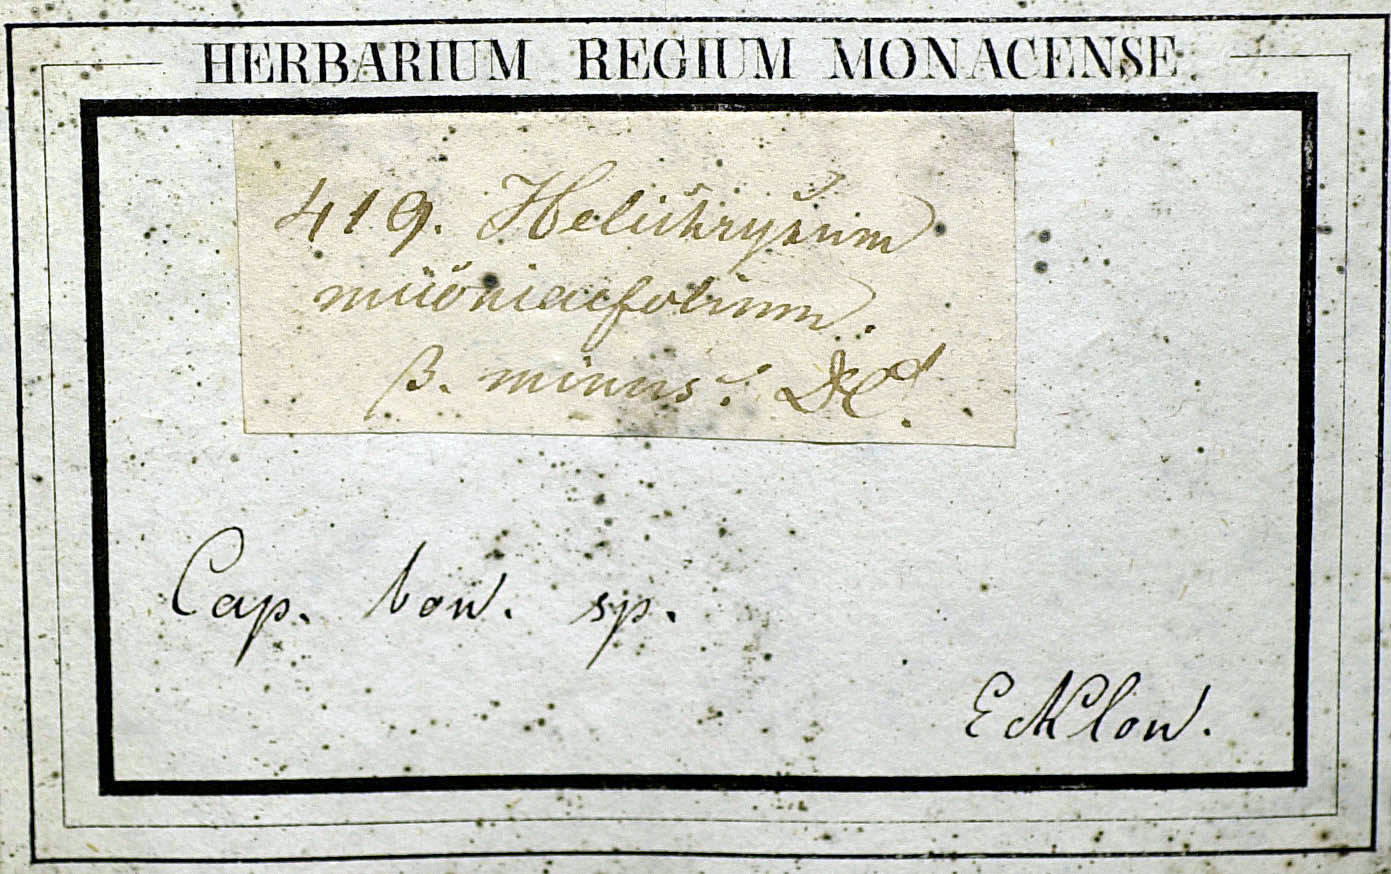 HERBARIUM REGIUM MONACENSE
419. Helichrysum
β. minus. DC.
Cap. bon. sp.
Ecklon.